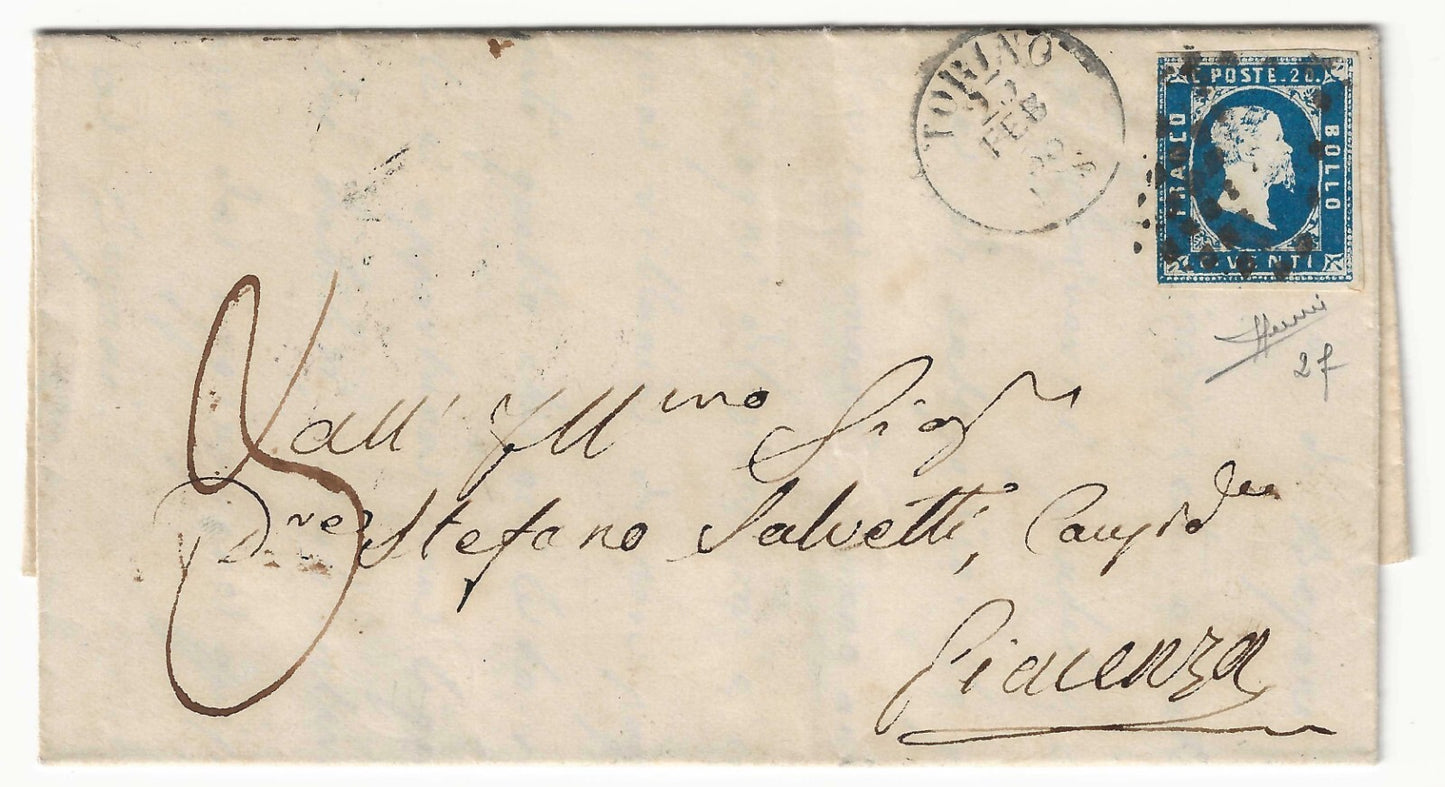 TORINO
FEB
C. POSTE. 20.
FRANCO
BOLLO
C. VENTI
2 f
8
all' Ill.mo Sig.r
D.re Stefano Salvetti,
Piacenza